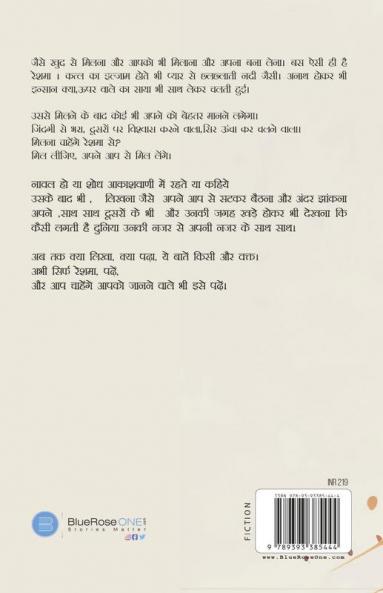 जैसे खुद से मिलना और आपको भी मिलाना और अपना बना लेना। बस ऐसी ही है
रेशमा । कत्ल का इल्जाम होते भी प्यार से छलछलाती नदी जैसी। अनाथ होकर भी
इन्सान क्या,ऊपर वाले का साया भी साथ लेकर चलती हुई।
उससे मिलने के बाद कोई भी अपने को बेहतर मानने लगेगा।
जिंदगी से भरा, दूसरों पर विश्वास करने वाला,सिर ऊंचा कर चलने वाला।
मिलना चाहेंगे रेशमा से?
मिल लीजिए, अपने आप से मिल लेंगे।
नावल हो या शोध आकाशवाणी में रहते या कहिये
उसके बाद भी , लिखना जैसे अपने आप से सटकर बैठना और अंदर झांकना
अपने ,साथ साथ दूसरों के भी और उनकी जगह खड़े होकर भी देखना कि
कैसी लगती है दुनिया उनकी नजर से अपनी नजर के साथ साथ।
अब तक क्या लिखा, क्या पढ़ा, ये बातें किसी और वक्त।
अभी सिर्फ रेशमा, पढ़ें,
और आप चाहेंगे आपको जानने वाले भी इसे पढ़ें।
INR 219
FICTION
ISBN 978-93-93385-44-4
9 789393 385444
www.BlueRoseOne.com
B
BlueRose ONE
Stories Matter